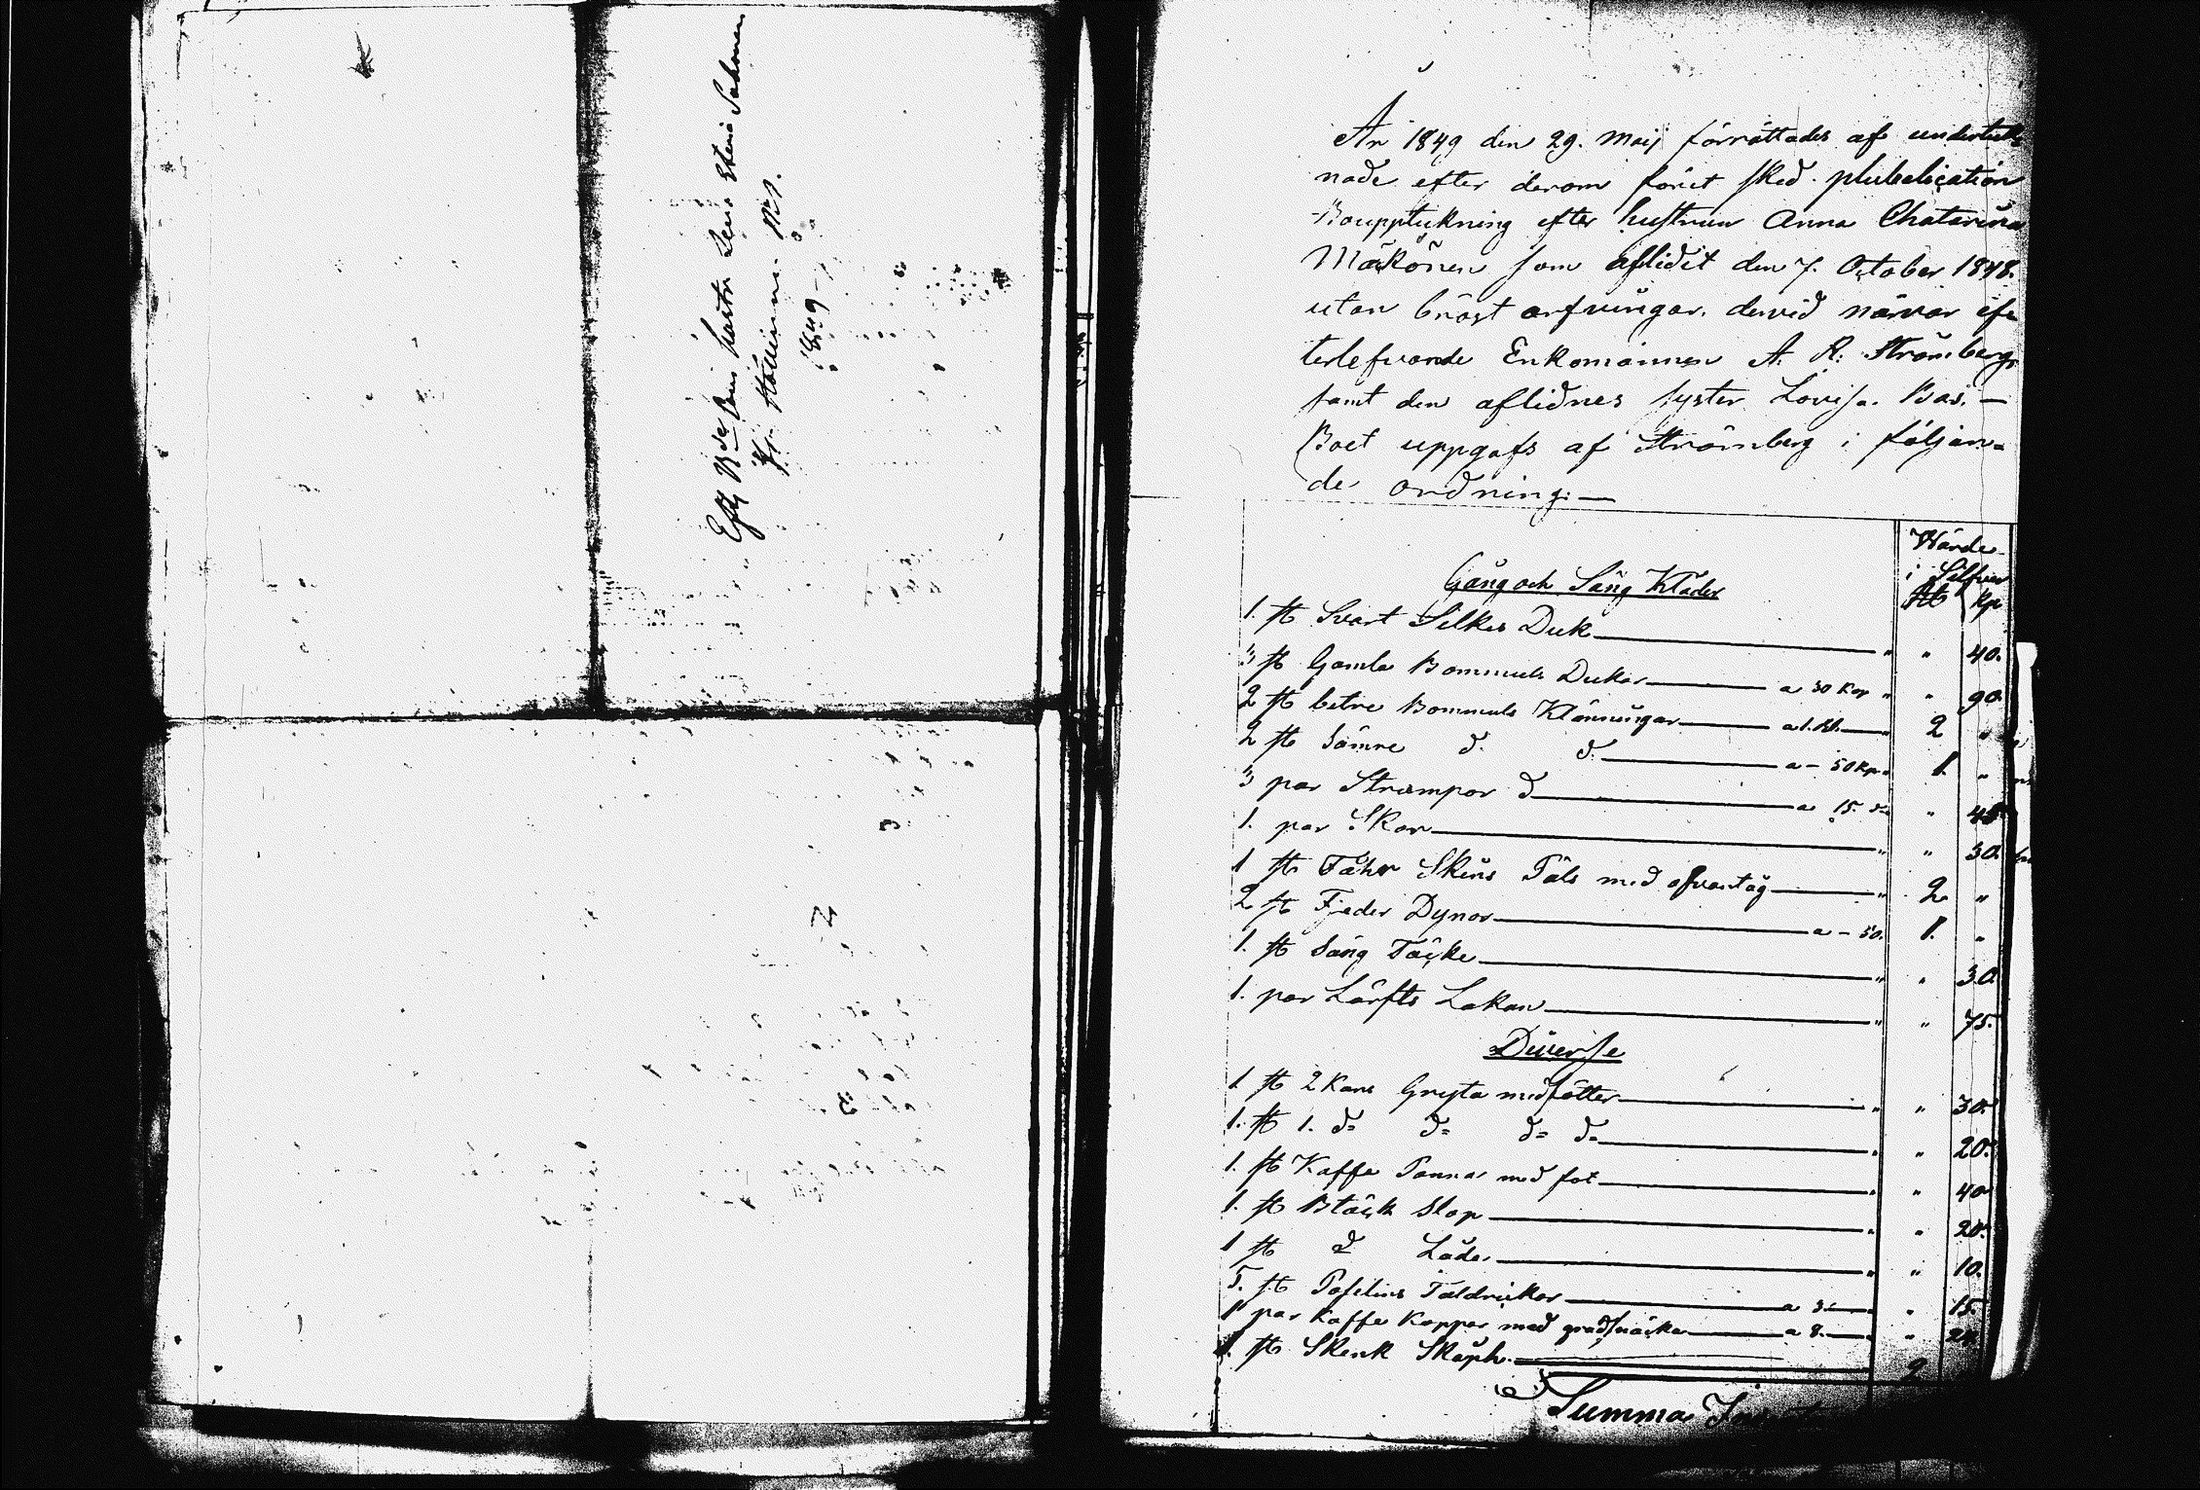 Bou hustru Lena Stina Salonen
1849
År 1849 den 29. Maij förrättades af underteck
nade efter derom förut sked plubelication
Boupptekning efter hustrun Anna Chatarina
Mäkönen som aflidit den 7. October 1848.
utan bröst arfvingar. dervid närvar ef
terlefvande Enkomannen A. R: Strömberg
samt den aflidnes syster Lovisa. Bas. —
Boet uppgafs af Strömberg i följan=
de ordning: —
Wärde
i Silfver
Gång och Säng Kläder
Rb Kp
1. st Svart Silkes Duk " " 40.
3 st Gamla Bommuls Dukar a 30 Kop " " 90.
2 st betre Bommuls Klänningar a 1. Rb. " 2 "
2 st Sämre d. d. a - 50 Kp. 1. "
3 par Strumpor d a 15. d= " 45
1. par Skor " " 30.
1 st Fåhr Skins Päls med öfvertåg " 2 "
2 st Fjeder Dynor a - 50. 1. "
1. st Säng Täcke " " 30
1. par Lärfts Lakan " " 75.
Diverse
1 st 2 Kans Gryta med fötter " " 30.
1. st 1. d= d= d= d= " " 20.
1. st Kaffe Panna med fot " " 40
1. st Bläck Stop " " 20.
1 st d Låda " " 10.
5. st Poselins Taldrickar a 3. " 15.
par Kaffe Koppar med a 8. " 24.
1. st Skenk Skåp 2
Summa